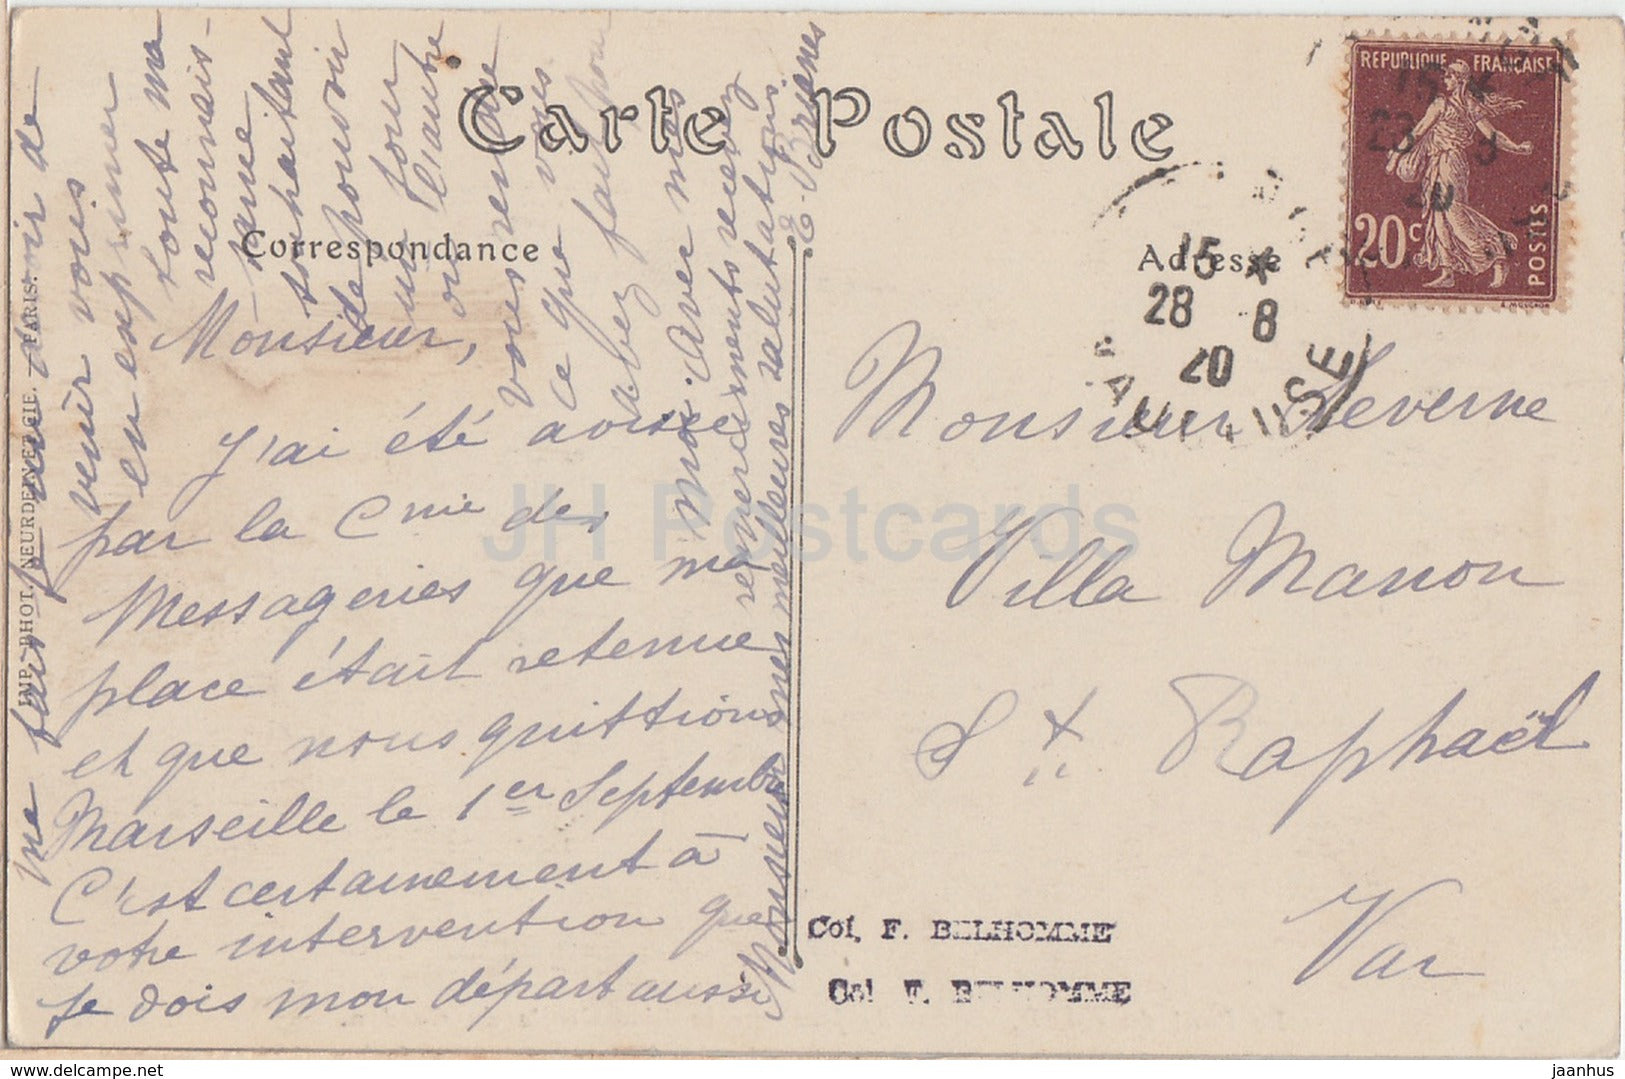 Carte Postale
Correspondance
Adresse
REPUBLIQUE FRANÇAISE
20c
POSTES
15 *
28 8
20
Monsieur,
J'ai été avisé
par la Cmie des
Messageries que ma
place était retenue
et que nous quittions
Marseille le 1er Septembre
C'est certainement à
votre intervention que
je dois mon départ aussi
me fais un devoir de
venir vous
en exprimer
toute ma
reconnais-
sance
souhaitant
de pouvoir
un jour
ou l'autre
vous rendre
ce que vous
avez fait pour
moi. Avec mes
remerciements recevez
Monsieur mes meilleures salutations.
E. Brianes
Monsieur Leverne
Villa Manon
St Raphaël
Var
Col. F. BELHOMME
Col. F. BELHOMME
IMP. PHOT. NEURDEIN ET CIE. PARIS.
JH Postcards
www.delcampe.net
jaanhus